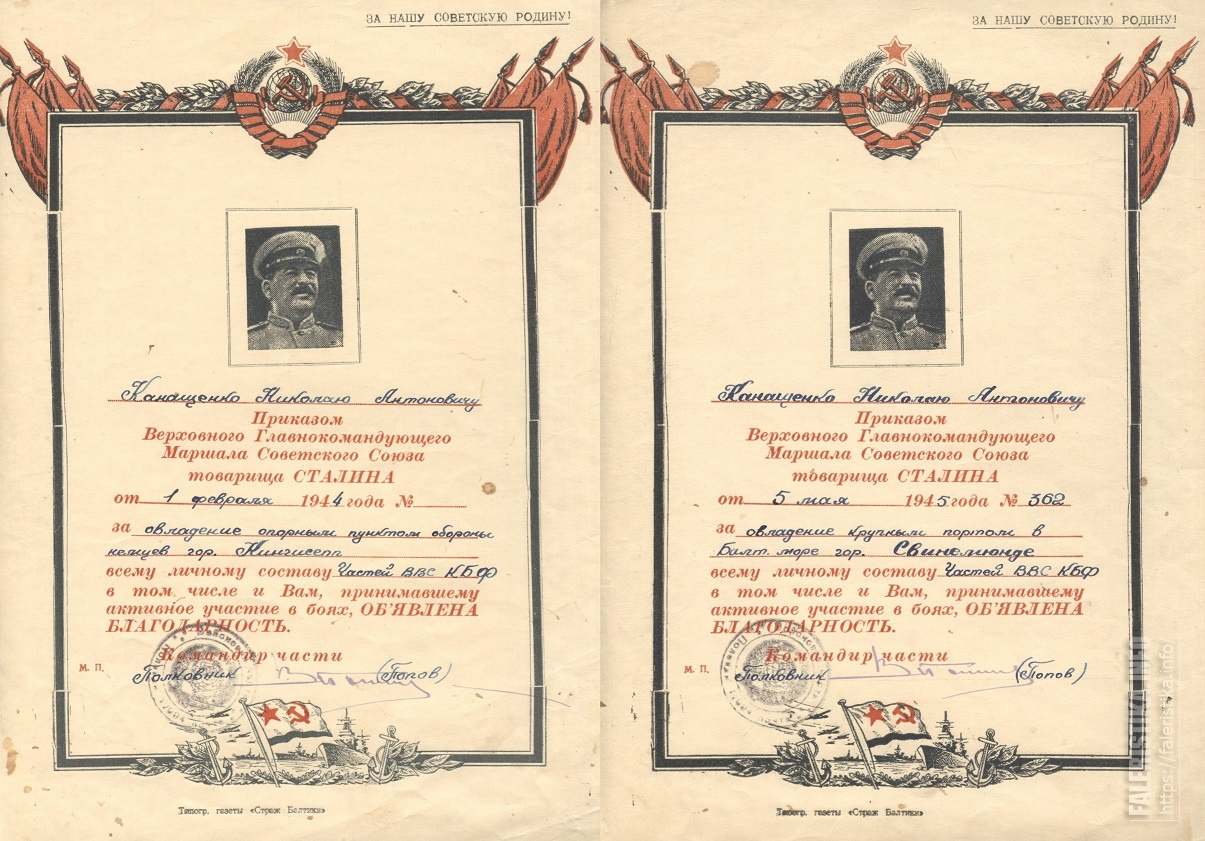 ЗА НАШУ СОВЕТСКУЮ РОДИНУ!
Канащенко Николаю Антоновичу
Приказом
Верховного Главнокомандующего
Маршала Советского Союза
товарища СТАЛИНА
от 1 февраля 1944 года №
за овладение опорным пунктом обороны
немцев гор. Кингисепп
всему личному составу Частей ВВС КБФ
в том числе и Вам, принимавшему
активное участие в боях, ОБ'ЯВЛЕНА
БЛАГОДАРНОСТЬ.
Командир части
М. П. Полковник (Попов)
Типогр. газеты «Страж Балтики»
ЗА НАШУ СОВЕТСКУЮ РОДИНУ!
Канащенко Николаю Антоновичу
Приказом
Верховного Главнокомандующего
Маршала Советского Союза
товарища СТАЛИНА
от 5 мая 1945 года № 362
за овладение крупным портом в
Балт. море гор. Свинемюнде
всему личному составу Частей ВВС КБФ
в том числе и Вам, принимавшему
активное участие в боях, ОБ'ЯВЛЕНА
БЛАГОДАРНОСТЬ.
Командир части
М. П. Полковник (Попов)
Типогр. газеты «Страж Балтики»
FALERISTIKA.INFO
https://faleristika.info